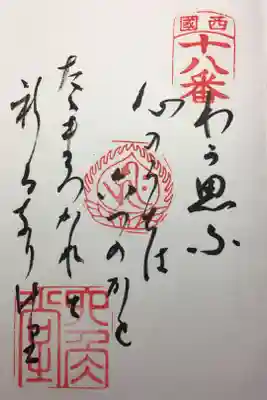 西國
十八番
わか思ふ
心のうちは
六つのかと
たゝまろかれと
祈るなりけ里
六角堂